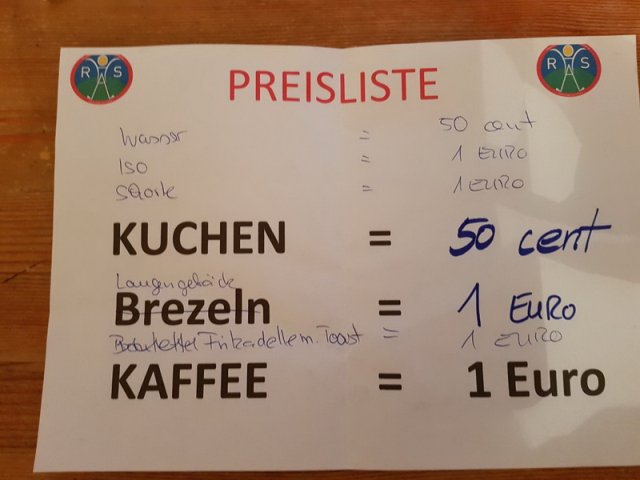 RAS PREISLISTE RAS
Wasser = 50 cent
ISO = 1 EURO
= 1 EURO
KUCHEN = 50 cent
Laugengebäck
Brezeln = 1 EURO
Frikadelle m. Toast = 1 EURO
KAFFEE = 1 Euro